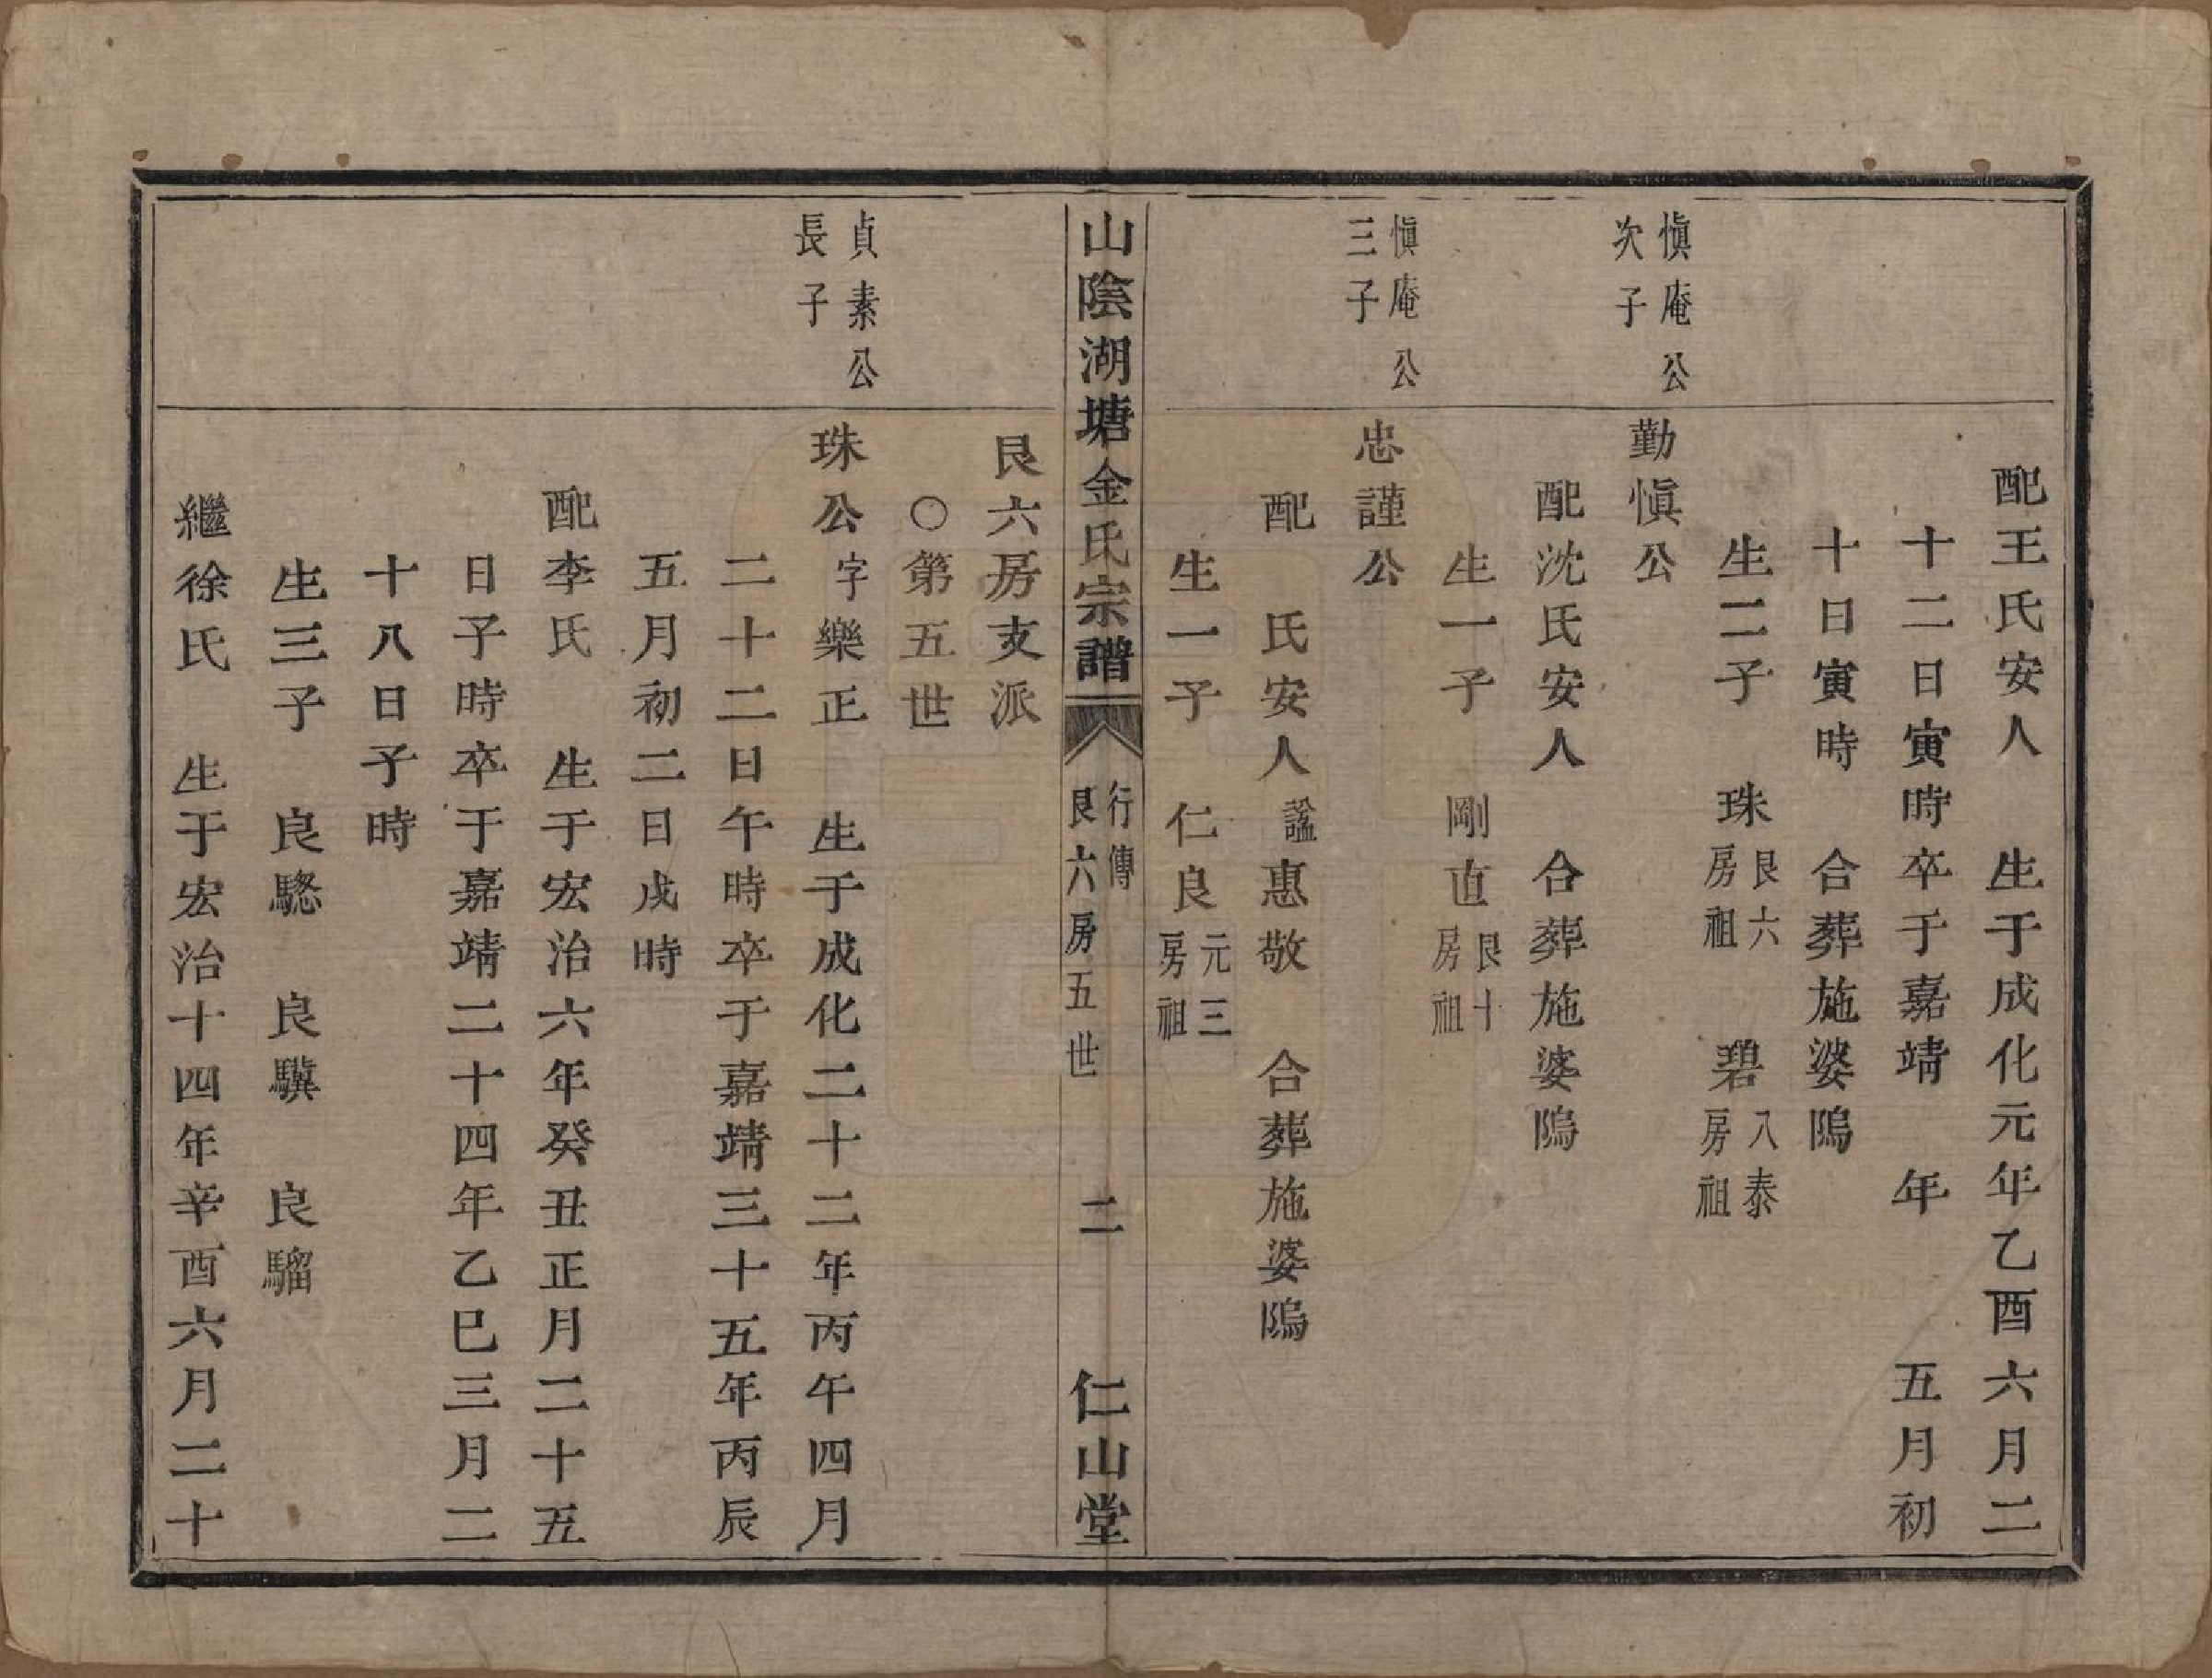 配王氏安人　生于成化元年乙酉六月二
十二日寅時卒于嘉靖　年　　五月初
十日寅時　合葬施婆隖
生二子　珠艮六房祖　碧八泰房祖
慎庵公次子
勤慎公
配沈氏安人　合葬施婆隖
生一子　剛直艮十房祖
慎庵公三子
忠謹公
配　氏安人諡惠敬　合葬施婆隖
生一子　仁良元三房祖
山陰湖塘金氏宗譜　行傳　艮六房五世　二　仁山堂
艮六房支派
○第五世
貞素公長子
珠公字樂正　生于成化二十二年丙午四月
二十二日午時卒于嘉靖三十五年丙辰
五月初二日戌時
配李氏　生于宏治六年癸丑正月二十五
日子時卒于嘉靖二十四年乙巳三月二
十八日子時
生三子　良騘　良驥　良騮
繼徐氏　生于宏治十四年辛酉六月二十